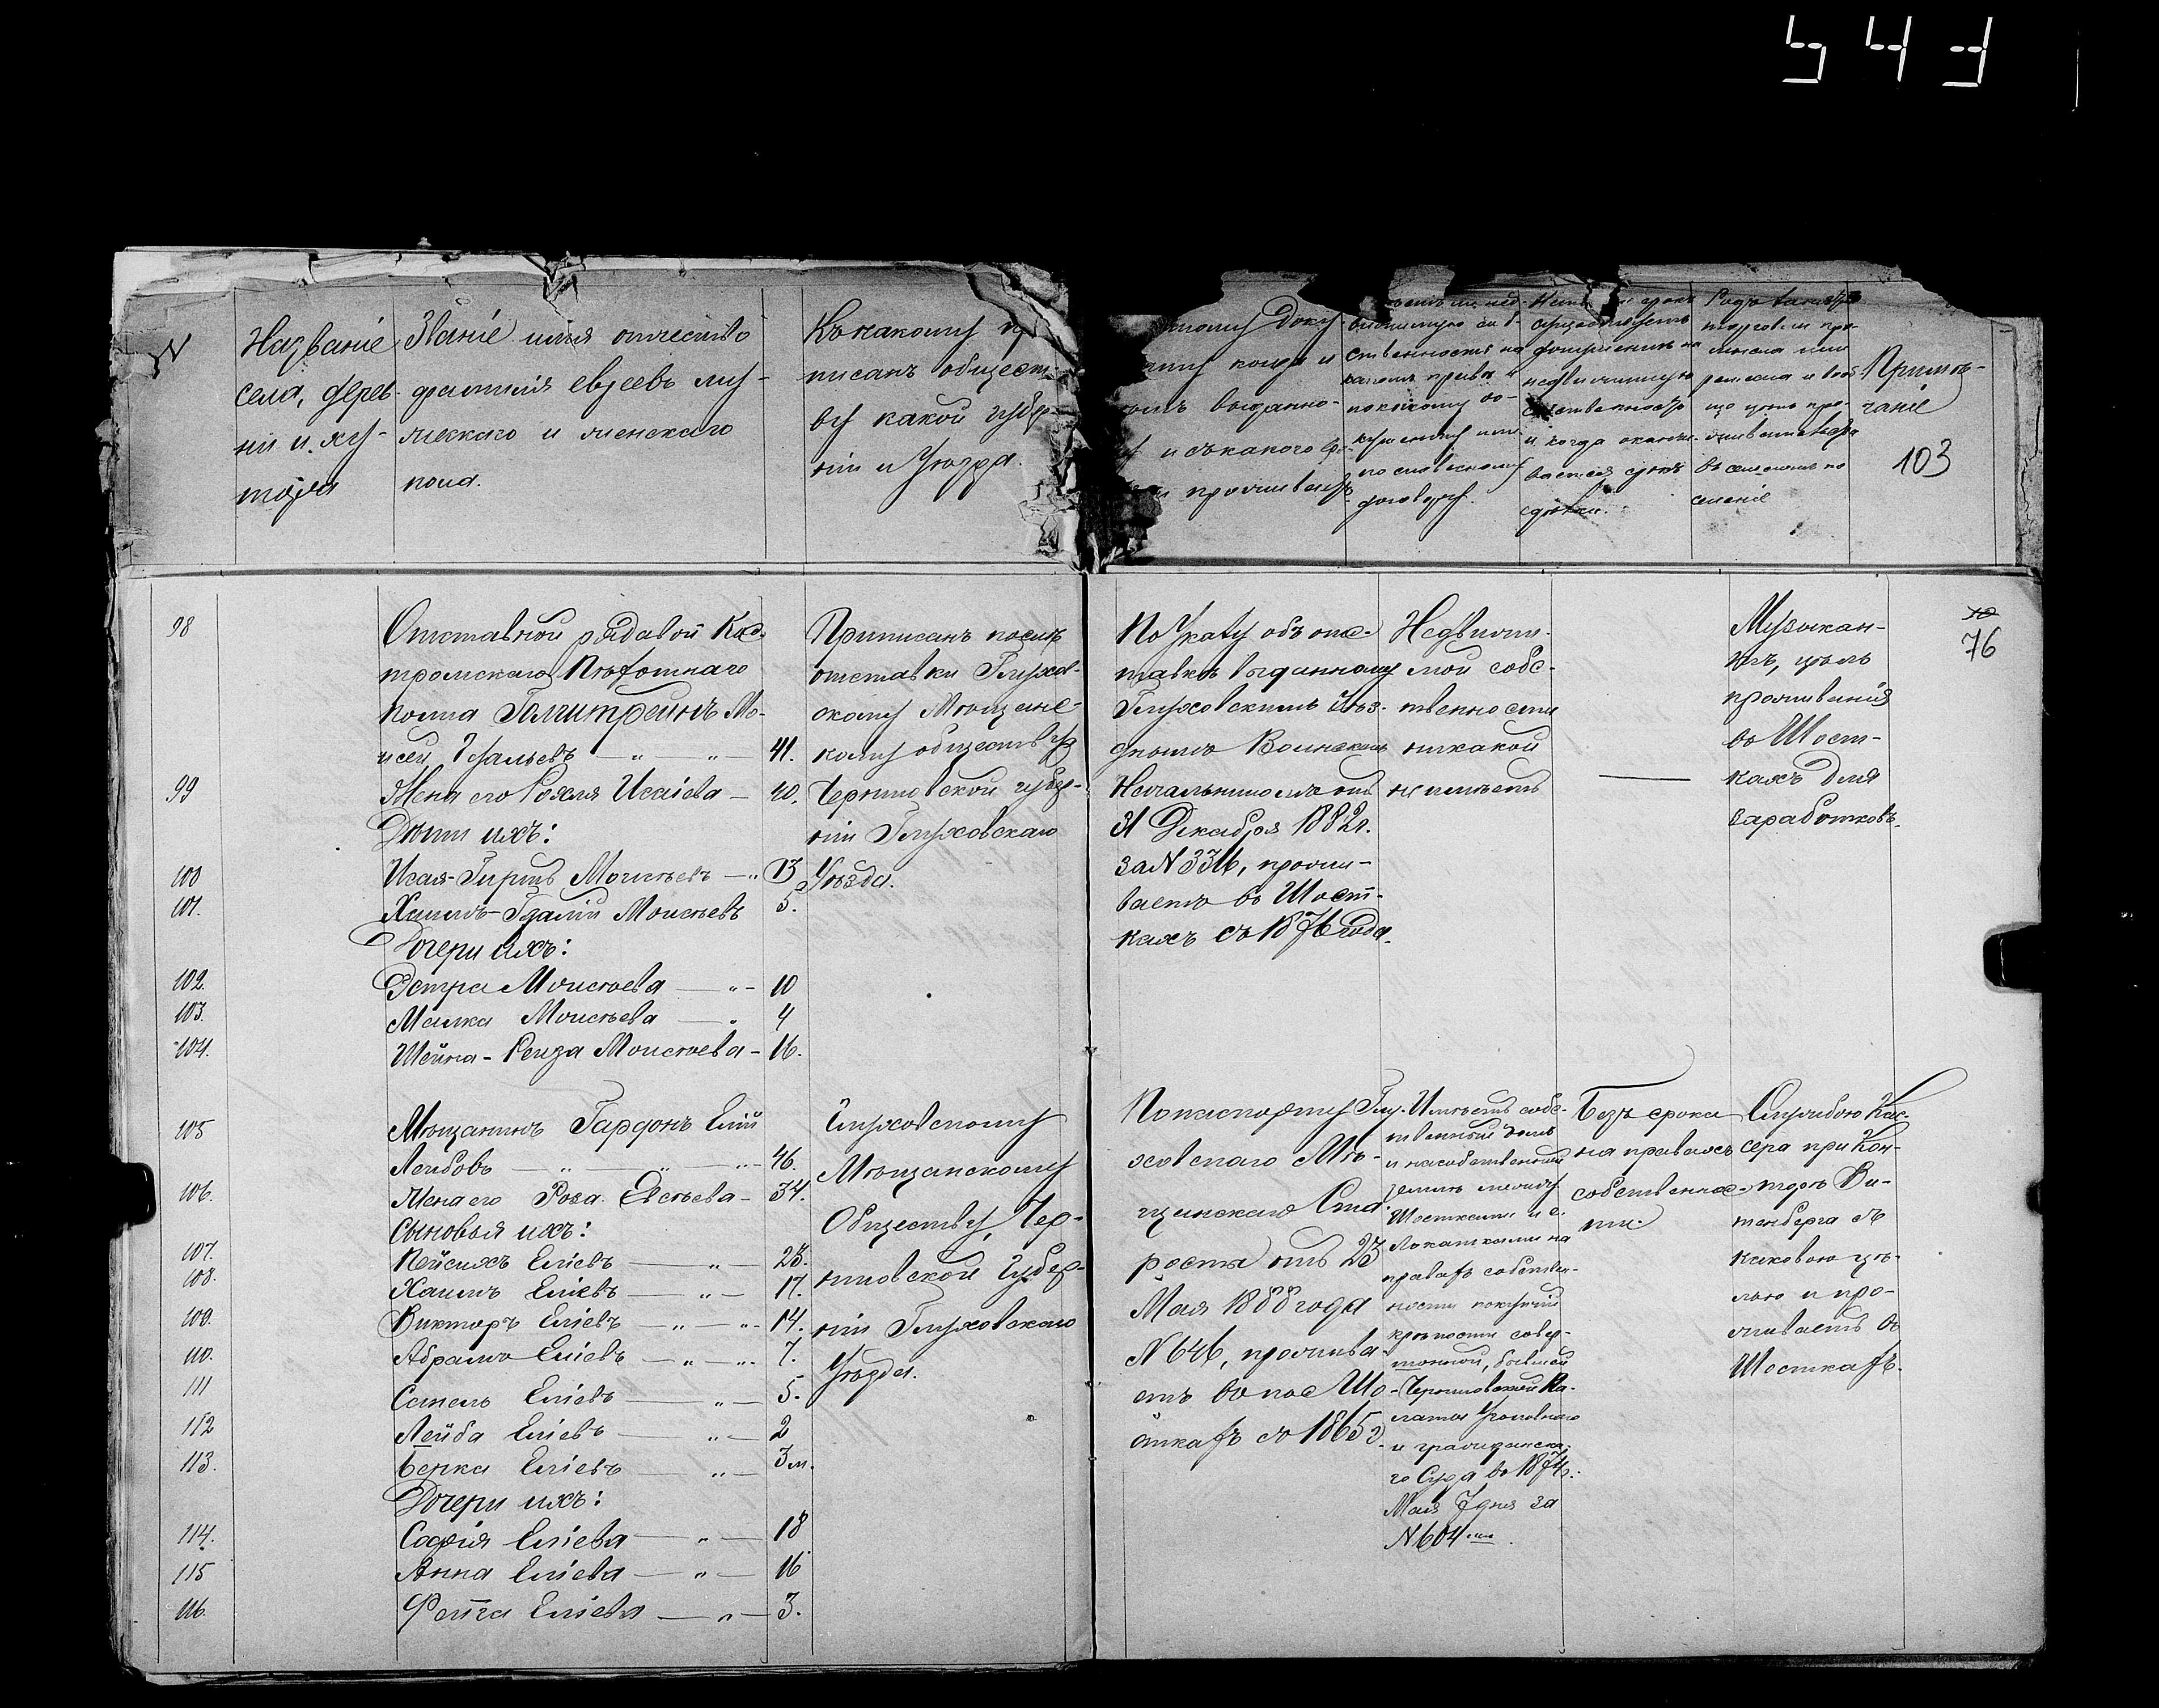 543
N
Названіе
села, дерев-
ни и ху-
тора
Званіе имя отчество
фамилія евреевъ муж-
ескаго и женскаго
пола.
Къ какому пр
писанъ общест-
ву какой губер-
ніи и Уѣзда.
Доку
когда и
выданно-
и съ какого
проживаетъ
ственность на
какомъ правѣ и
по какому до-
кументу или
по словесному
договору.
недвижимую
собственность
и когда оканчи-
вается срокъ
сдѣлки.
Родъ занятія
торговли про-
мысла или
ремесла и вооб-
ще цель про-
живательства
въ сельскихъ по
селеніе
Примѣ-
чаніе
103
76
98
Отставной рядавой Кос-
тромскаго Пѣхотнаго
полка Галитрейнъ Мо-
исей 41.
99
Жена его Рохля Исаіева — 40.
Дѣти ихъ:
100
Исая-Гиршъ Моисѣевъ — 13
101.
Хаимъ-Гдалій Моисѣевъ 5.
Дочери ихъ:
102.
Эстра Моисѣева — " - 10
103.
Малка Моисѣева — " 4
104.
Шейна-Рейза Моисѣева - 16.
Приписанъ послѣ
отставки Глухов-
скому Мѣщанс-
кому обществу
Черниговской губер-
ніи Глуховскаго
Уѣзда.
По Указу объ отс-
тавкѣ выданному
Глуховскимъ Уѣз-
днымъ Воинскимъ
Начальникомъ отъ
31 Декабря 1882г.
за N 3316, прожи-
ваетъ въ Шост-
кахъ съ 1876 года.
Недвижи-
мой собс-
твенности
никакой
не имѣетъ
—
Музыкан-
тъ, цѣль
проживанія
въ Шост-
кахъ для
заработковъ.
105
Мѣщанинъ Гардонъ Елій
Лейбовъ — " — " — " - 46.
106.
Жена его Роза Евсѣева - 34.
Сыновья ихъ:
107.
Пейсахъ Еліевъ — " — 23.
108.
Хаимъ Еліевъ — " — 17.
109.
Викторъ Еліевъ — " — " 14.
110.
Абрамъ Еліевъ — " — " 7.
111
Еліевъ — " — 5.
112
Лейба Еліевъ — " — 2
113.
Берка Еліевъ — " — 3 м.
Дочери ихъ:
114.
Софія Еліева — " — 18
115
Анна Еліева — " — 16
116.
Фейга Еліева — " — 3.
Глуховскому
Мѣщанскому
Обществу, Чер-
ниговской Губер-
ніи Глуховскаго
Уѣзда.
По паспорту Глу-
ховскаго Мѣ-
щанскаго Ста-
росты отъ 23
Мая 1888 года
N 646, прожива-
етъ въ пос Шо-
сткахъ съ 1865 г
Имѣетъ собс-
твенный домъ
и на собственной
землѣ между
Шостками и с.
Локотками на
правахъ собствен-
ности покупной
крѣпости совер-
шонной, бывшей
Черниговской Па-
латы Уголовнаго
и гражданска-
го Суда въ 1874г.
Мая 7 дня за
N 604
Безъ срока
на правахъ
собственнос-
ти.
Службою Кас-
сира при Кон-
торѣ Ви-
тенберга съ
каковою цѣ-
лью и про-
живаетъ въ
Шосткахъ.